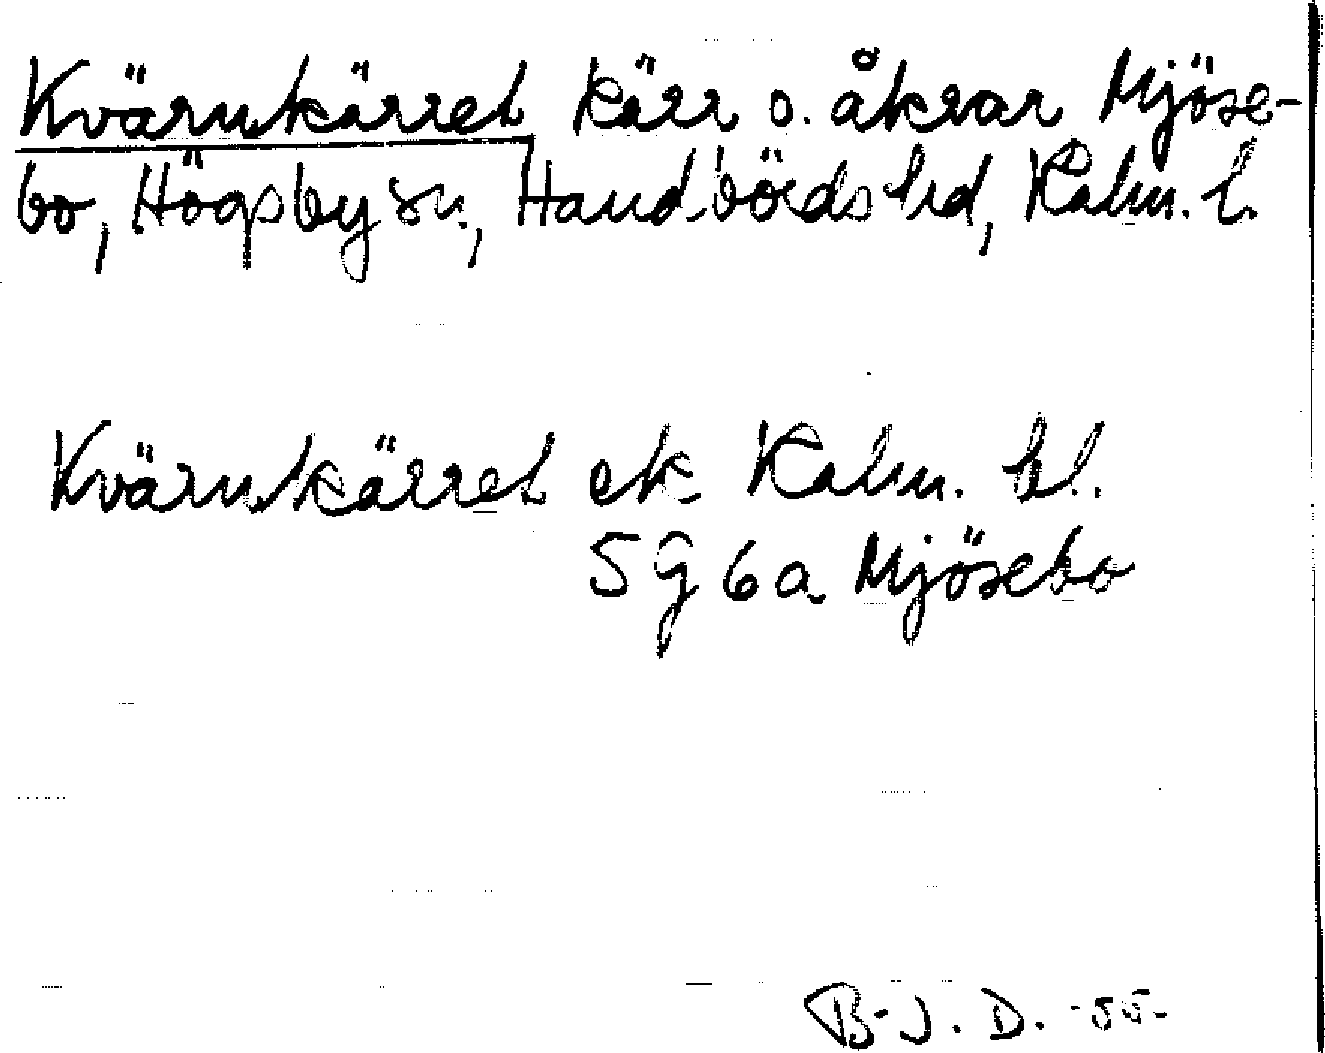 Kvärnkärret kärr o. åkrar Mjöse-
bo, Högsby sn, Handbörds hd, Kalm. l.
Kvärnkärret ek Kalm. bl.
5G6a Mjösebo
B-J. D. -55-